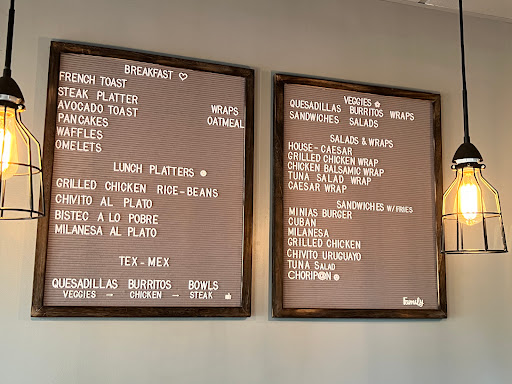 BREAKFAST ♡
FRENCH TOAST
STEAK PLATTER
AVOCADO TOAST WRAPS
PANCAKES OATMEAL
WAFFLES
OMELETS
LUNCH PLATTERS
GRILLED CHICKEN RICE-BEANS
CHIVITO AL PLATO
BISTEC A LO POBRE
MILANESA AL PLATO
TEX-MEX
QUESADILLAS BURRITOS BOWLS
VEGGIES → CHICKEN → STEAK
VEGGIES
QUESADILLAS BURRITOS WRAPS
SANDWICHES SALADS
SALADS & WRAPS
HOUSE-CAESAR
GRILLED CHICKEN WRAP
CHICKEN BALSAMIC WRAP
TUNA SALAD WRAP
CAESAR WRAP
SANDWICHES W/FRIES
MINIAS BURGER
CUBAN
MILANESA
GRILLED CHICKEN
CHIVITO URUGUAYO
TUNA SALAD
CHORIP@N
Family